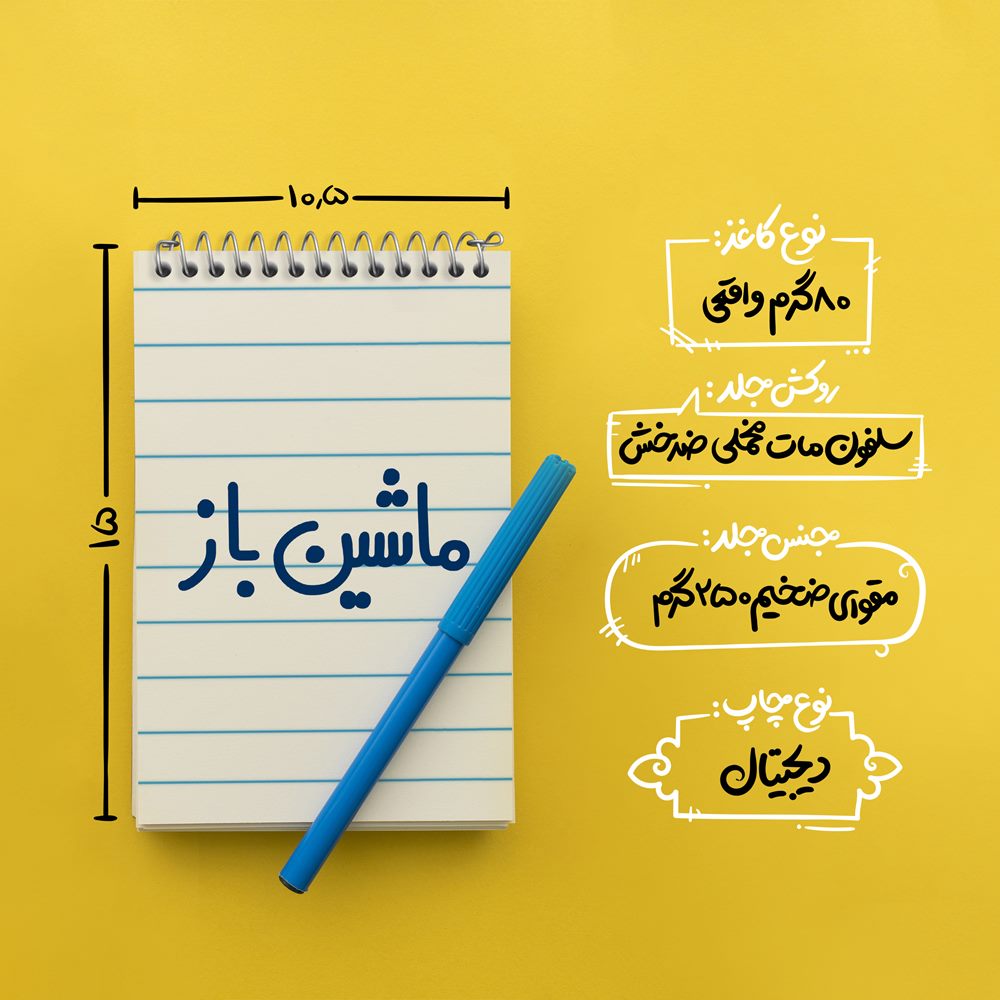 ۱۰٫۵
۱۵
ماشین باز
نوع کاغذ:
۸۰گرم واقعی
روکش جلد:
سلفون مات مخملی ضدخش
جنس جلد:
مقوای ضخیم ۲۵۰گرم
نوع چاپ:
دیجیتال